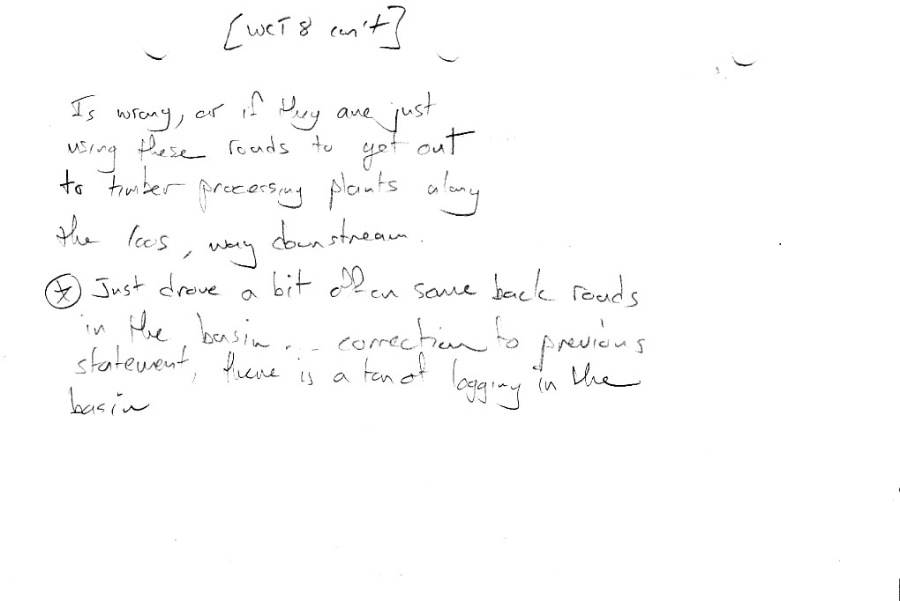 [WCT 8 con't]
Is wrong, or if they are just
using these roads to get out
to timber processing plants along
the , way downstream.
* Just drove a bit off on some back roads
in the basin... correction to previous
statement, there is a ton of logging in the
basin